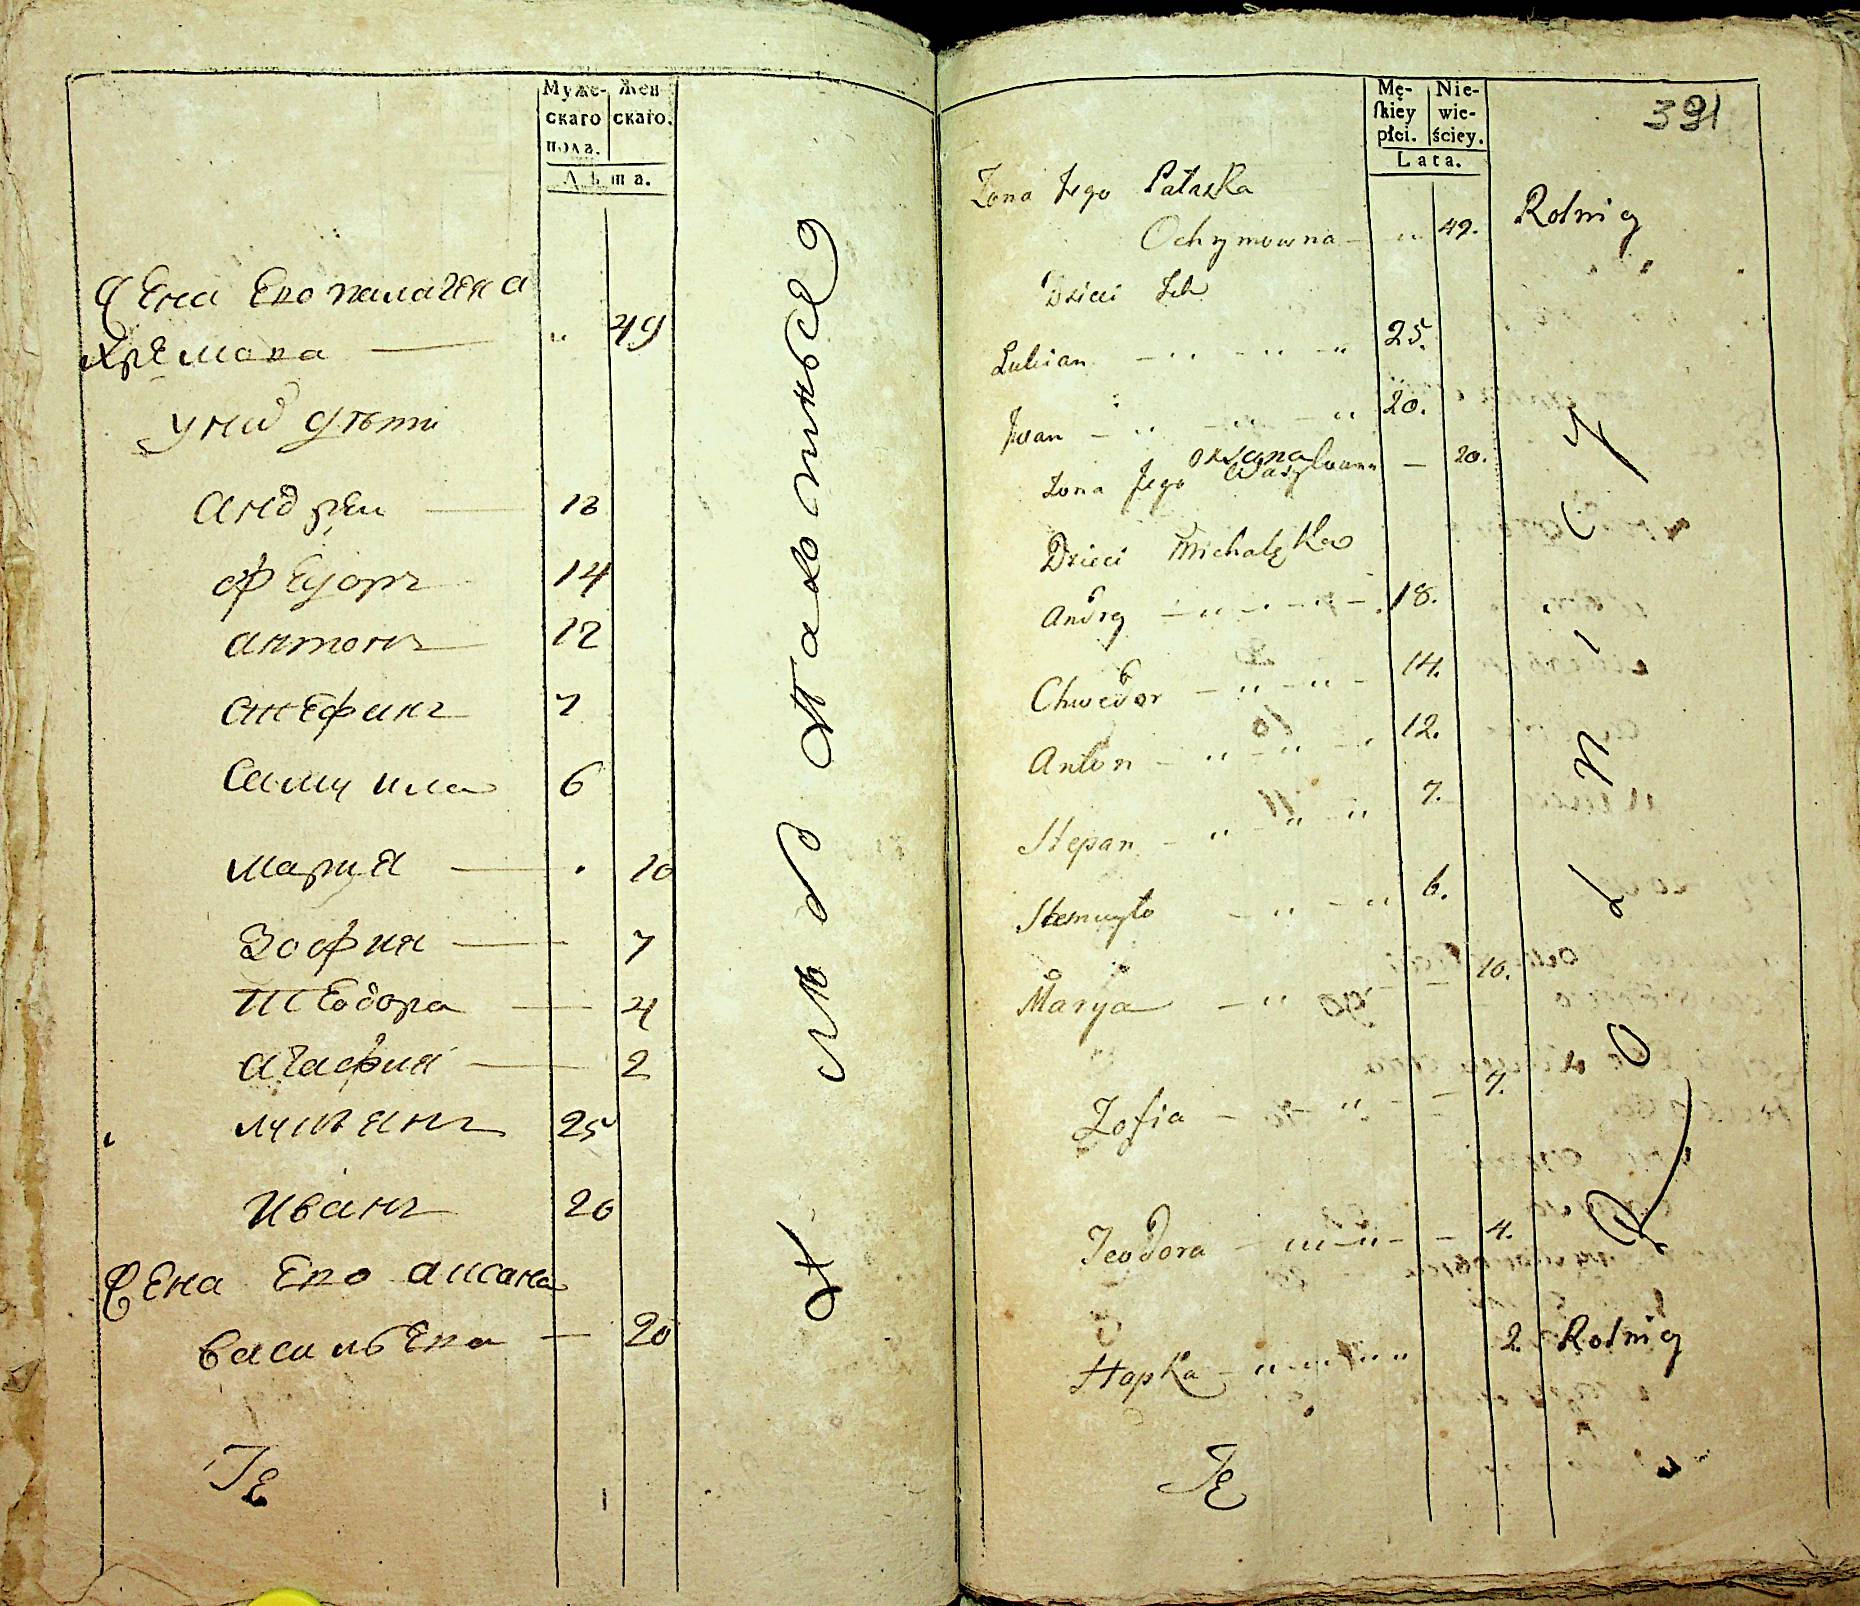 Муже-
скаго
пола.
Жен
скаго.
Лѣта.
Жена Его палагея
49
у них дѣти
андрей 18
Феүоръ 14
антонъ 12
стефанъ 7
Самуила 6
мариѧ 10
Зофия 7
Теодора 4
агафия 2
лукъянъ 25
Иванъ 20
Жена Его аксана
васильева 20
Mę-
skiey
płci.
Nie-
wie-
ściey.
Lata.
391
Żona Jego Pałazka
Ochymowna 49. Rolnicy
Dzieci Ich
Lukian 25.
Jwan 20.
Żona Jego oxsana Wasylowna 20.
Dzieci Michałka
Andrey 18.
Chwedor 14.
Anton 12.
Stepan 7.
Samuyło 6.
Marya 10.
Zofia 7.
Teodora 4.
Hapka 2. Rolnicy
Rolnicy